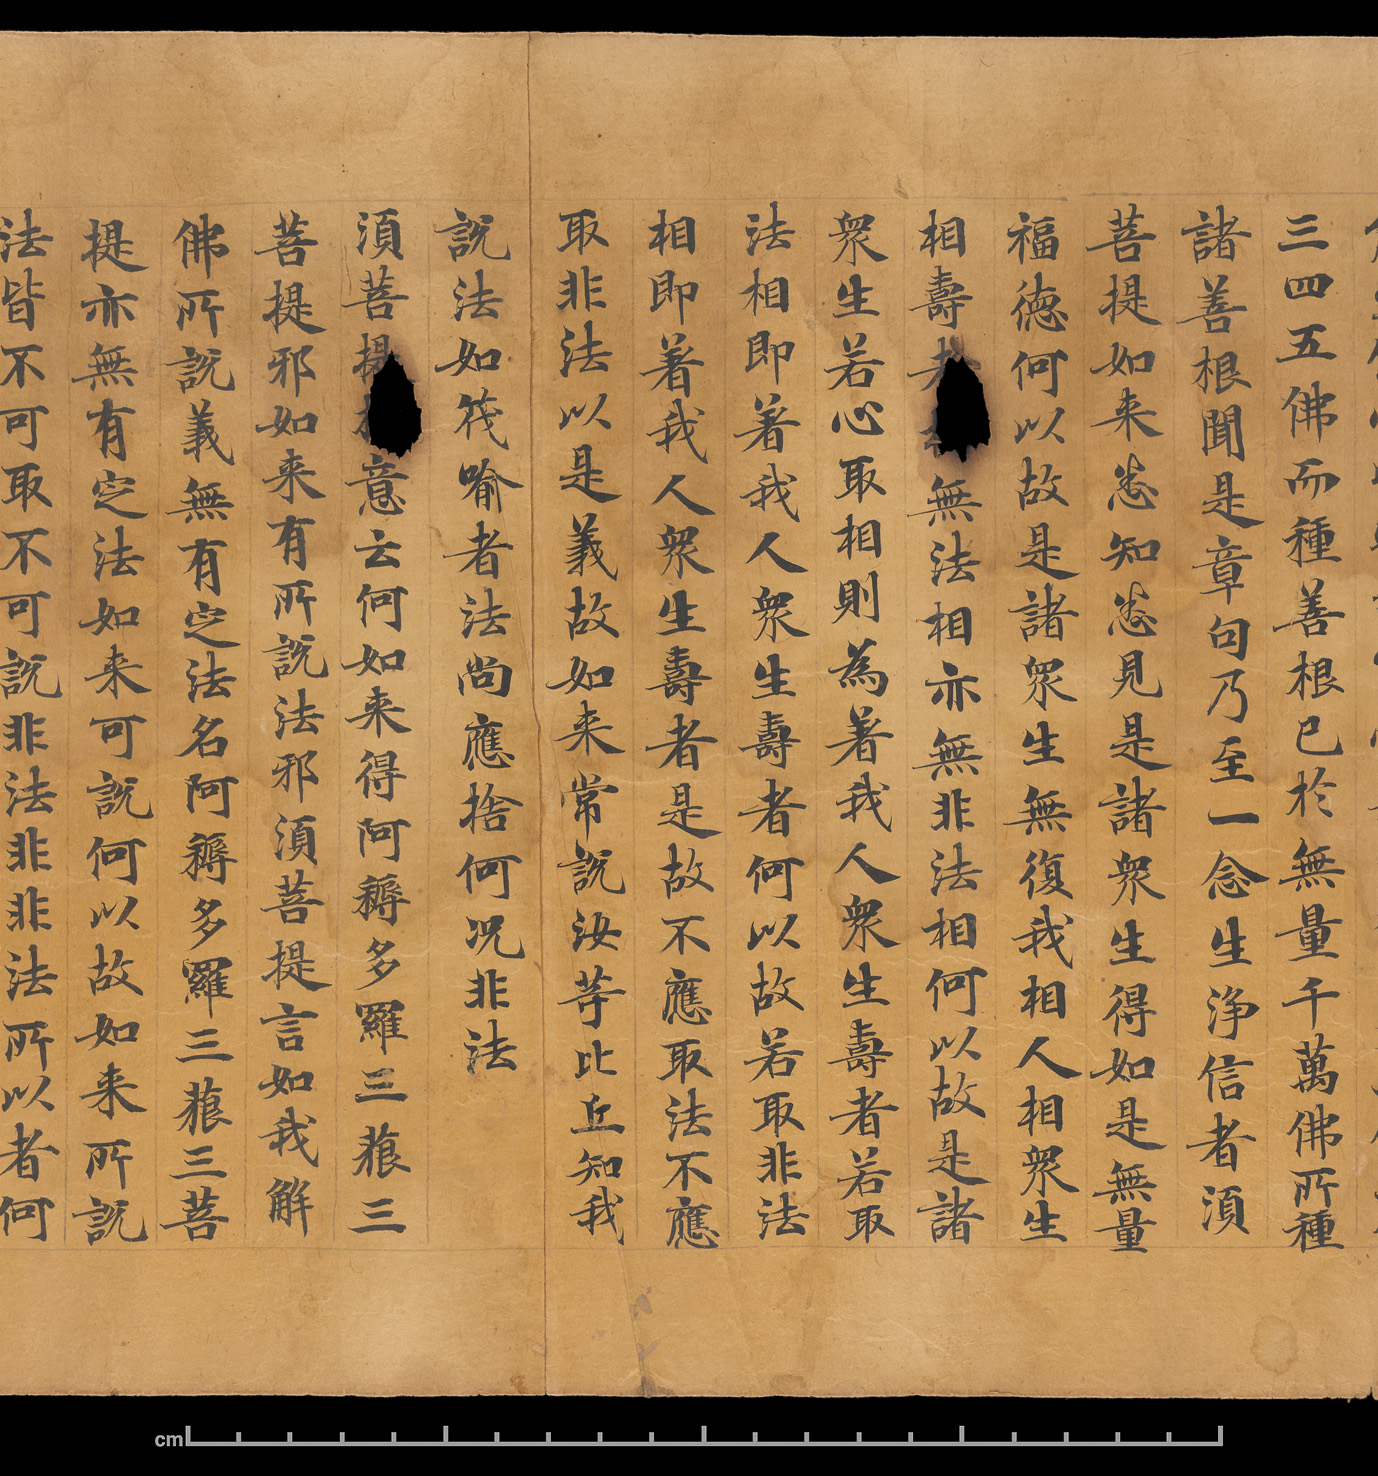 三四五佛而種善根已於無量千萬佛所種
諸善根聞是章句乃至一念生淨信者須
菩提如来悉知悉見是諸衆生得如是無量
福德何以故是諸衆生無復我相人相衆生
相壽無法相亦無非法相何以故是諸
衆生若心取相則為著我人衆生壽者若取
法相即著我人衆生壽者何以故若取非法
相即著我人衆生壽者是故不應取法不應
取非法以是義故如来常說汝等比丘知我
說法如筏喻者法尚應捨何况非法
須菩提意云何如来得阿耨多羅三藐三
菩提邪如来有所說法邪須菩提言如我解
佛所說義無有定法名阿耨多羅三藐三菩
提亦無有定法如来可說何以故如来所說
法皆不可取不可說非法非非法所以者何